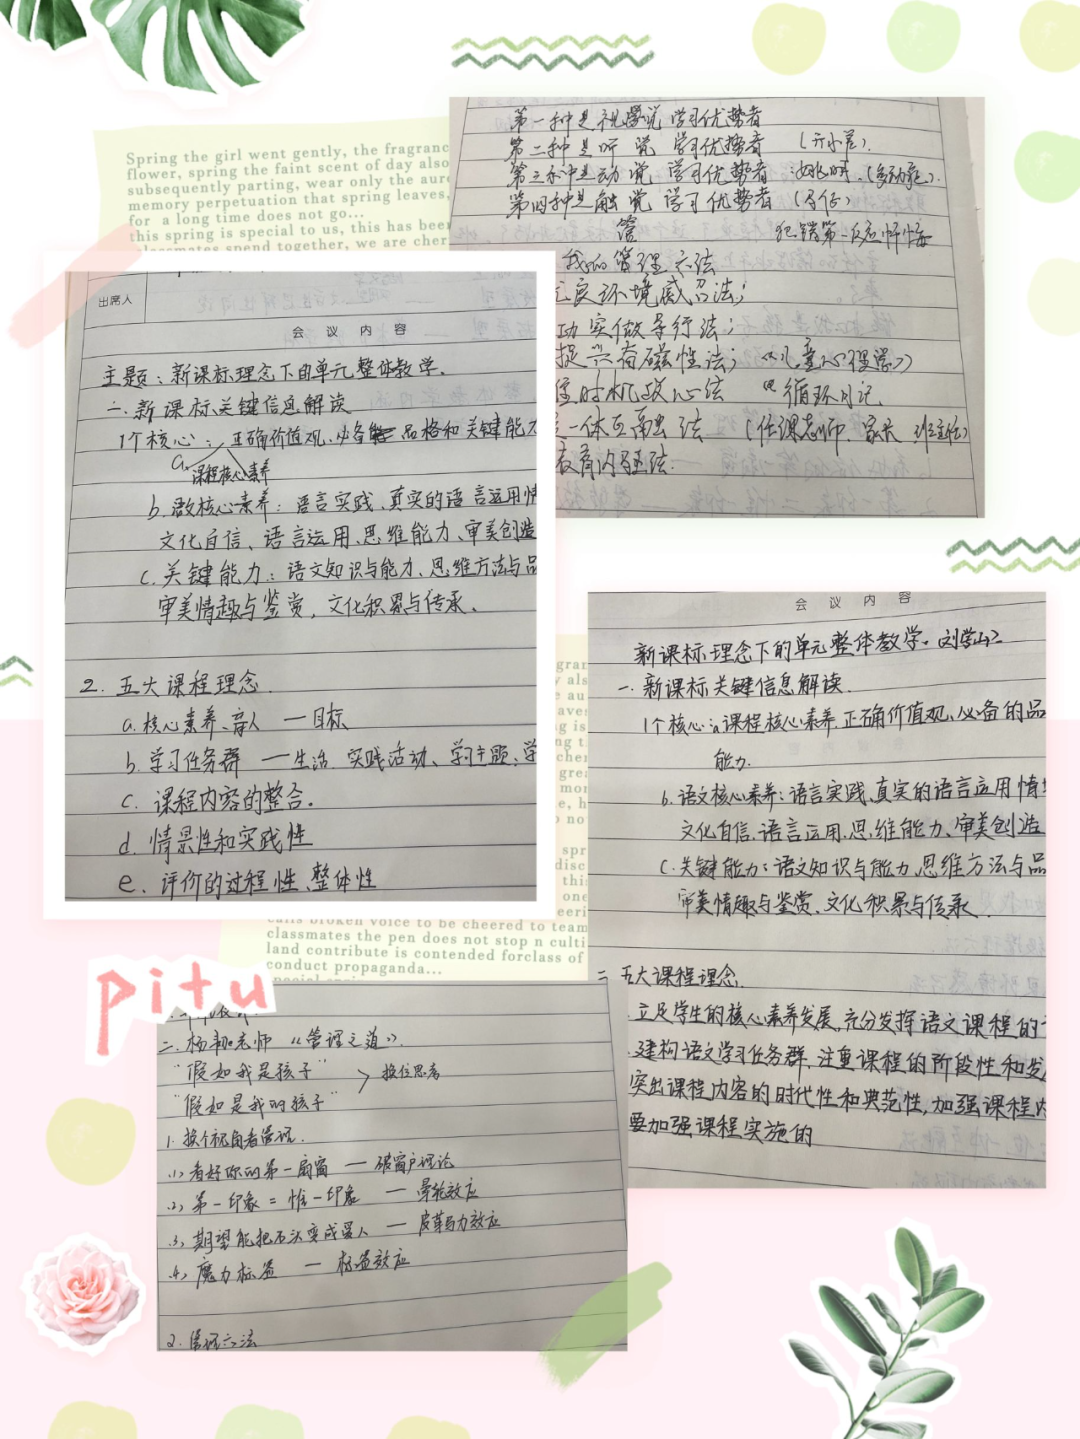 Spring the girl went gently, the fragranc
flower, spring the faint scent of day also
subsequently parting, wear only the aure
memory perpetuation that spring leaves,
for a long time does not go...
this spring is special to us, this has been
classmates spend together, we are cher
第一种是视觉 学习优势者
第二种是听觉 学习优势者 (开小差).
第三种是动觉 学习优势者 (多动症).
第四种是触觉 学习优势者
管
我的管理六法
良环境感召法;
功实做导行法;
捉兴奋磁性法; 《儿童心理学》
时机攻心法 循环日记.
一体互融法 (任课老师. 家长 班主任)
教育内驱法.
出席人
会 议 内 容
主题:新课标理念下的单元整体教学.
一.新课标关键信息解读
1个核心: 正确价值观、必备 品格和关键能
a. 课程核心素养
b. 核心素养:语言实践、真实的语言运用情
文化自信、语言运用、思维能力、审美创造
c. 关键能力:语文知识与能力、思维方法与品
审美情趣与鉴赏,文化积累与传承、
2. 五大课程理念.
a. 核心素养、育人 — 目标
b. 学习任务群 — 生活 实践活动、学习主题、学
c. 课程内容的整合。
d. 情景性和实践性
e. 评价的过程性、整体性
会 议 内 容
新课标理念下的单元整体教学.
一. 新课标关键信息解读.
1个核心:a课程核心素养.正确价值观、必备的品
能力.
b. 语文核心素养:语言实践、真实的语言运用情
文化自信.语言运用.思维能力、审美创造
C.关键能力:语文知识与能力.思维方法与品
审美情趣与鉴赏、文化积累与传承.
二 五大课程理念.
立足学生的核心素养发展,充分发挥语文课程的
建构语文学习任务群,注重课程的阶段性和发
突出课程内容的时代性和典范性,加强课程内
要加强课程实施的
calls broken voice to be cheered to team
classmates the pen does not stop n culti
land contribute is contended forclass of
conduct propaganda...
pitu
二. 老师 《管理之道》.
"假如我是孩子" > 换位思考
"假如是我的孩子"
1. 换个视角看管理.
(1) 看好你的第一扇窗 — 破窗户理论
(2) 第一印象 = 惟一印象 — 晕轮效应
(3) 期望能把石头变成星人 — 皮革马力效应
(4) 魔力标签 — 标签效应
2. 管理六法